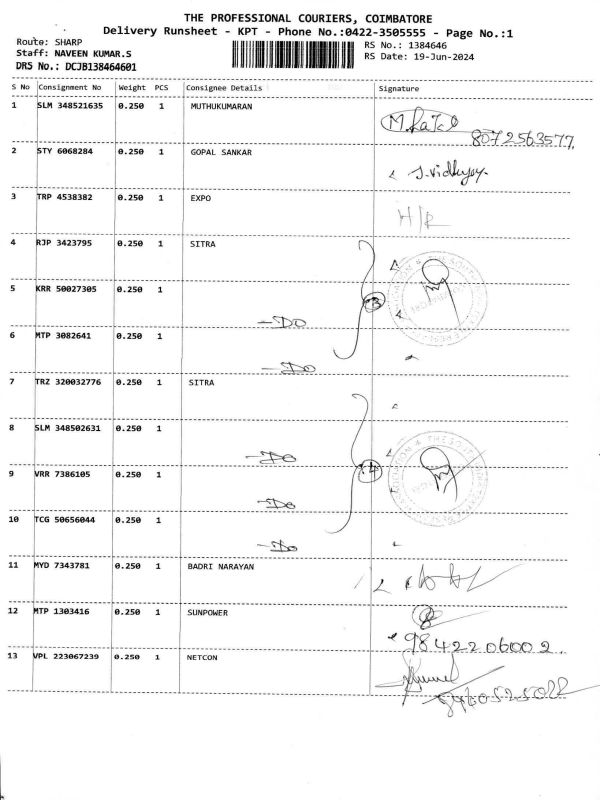 THE PROFESSIONAL COURIERS, COIMBATORE
Delivery Runsheet - KPT - Phone No.:0422-3505555 - Page No.:1
Route: SHARP
Staff: NAVEEN KUMAR.S
DRS No.: DCJB138464601
RS No.: 1384646
RS Date: 19-Jun-2024
S No Consignment No Weight PCS Consignee Details Signature
1 SLM 348521635 0.250 1 MUTHUKUMARAN
8072563577
2 STY 6068284 0.250 1 GOPAL SANKAR
3 TRP 4538382 0.250 1 EXPO
H/R
4 RJP 3423795 0.250 1 SITRA
5 KRR 50027305 0.250 1
-DO
3
6 MTP 3082641 0.250 1
-DO
7 TRZ 320032776 0.250 1 SITRA
8 SLM 348502631 0.250 1
-DO
9 VRR 7386105 0.250 1
-DO
4
10 TCG 50656044 0.250 1
-DO
11 MYD 7343781 0.250 1 BADRI NARAYAN
12 MTP 1303416 0.250 1 SUNPOWER
9842206002.
13 VPL 223067239 0.250 1 NETCON